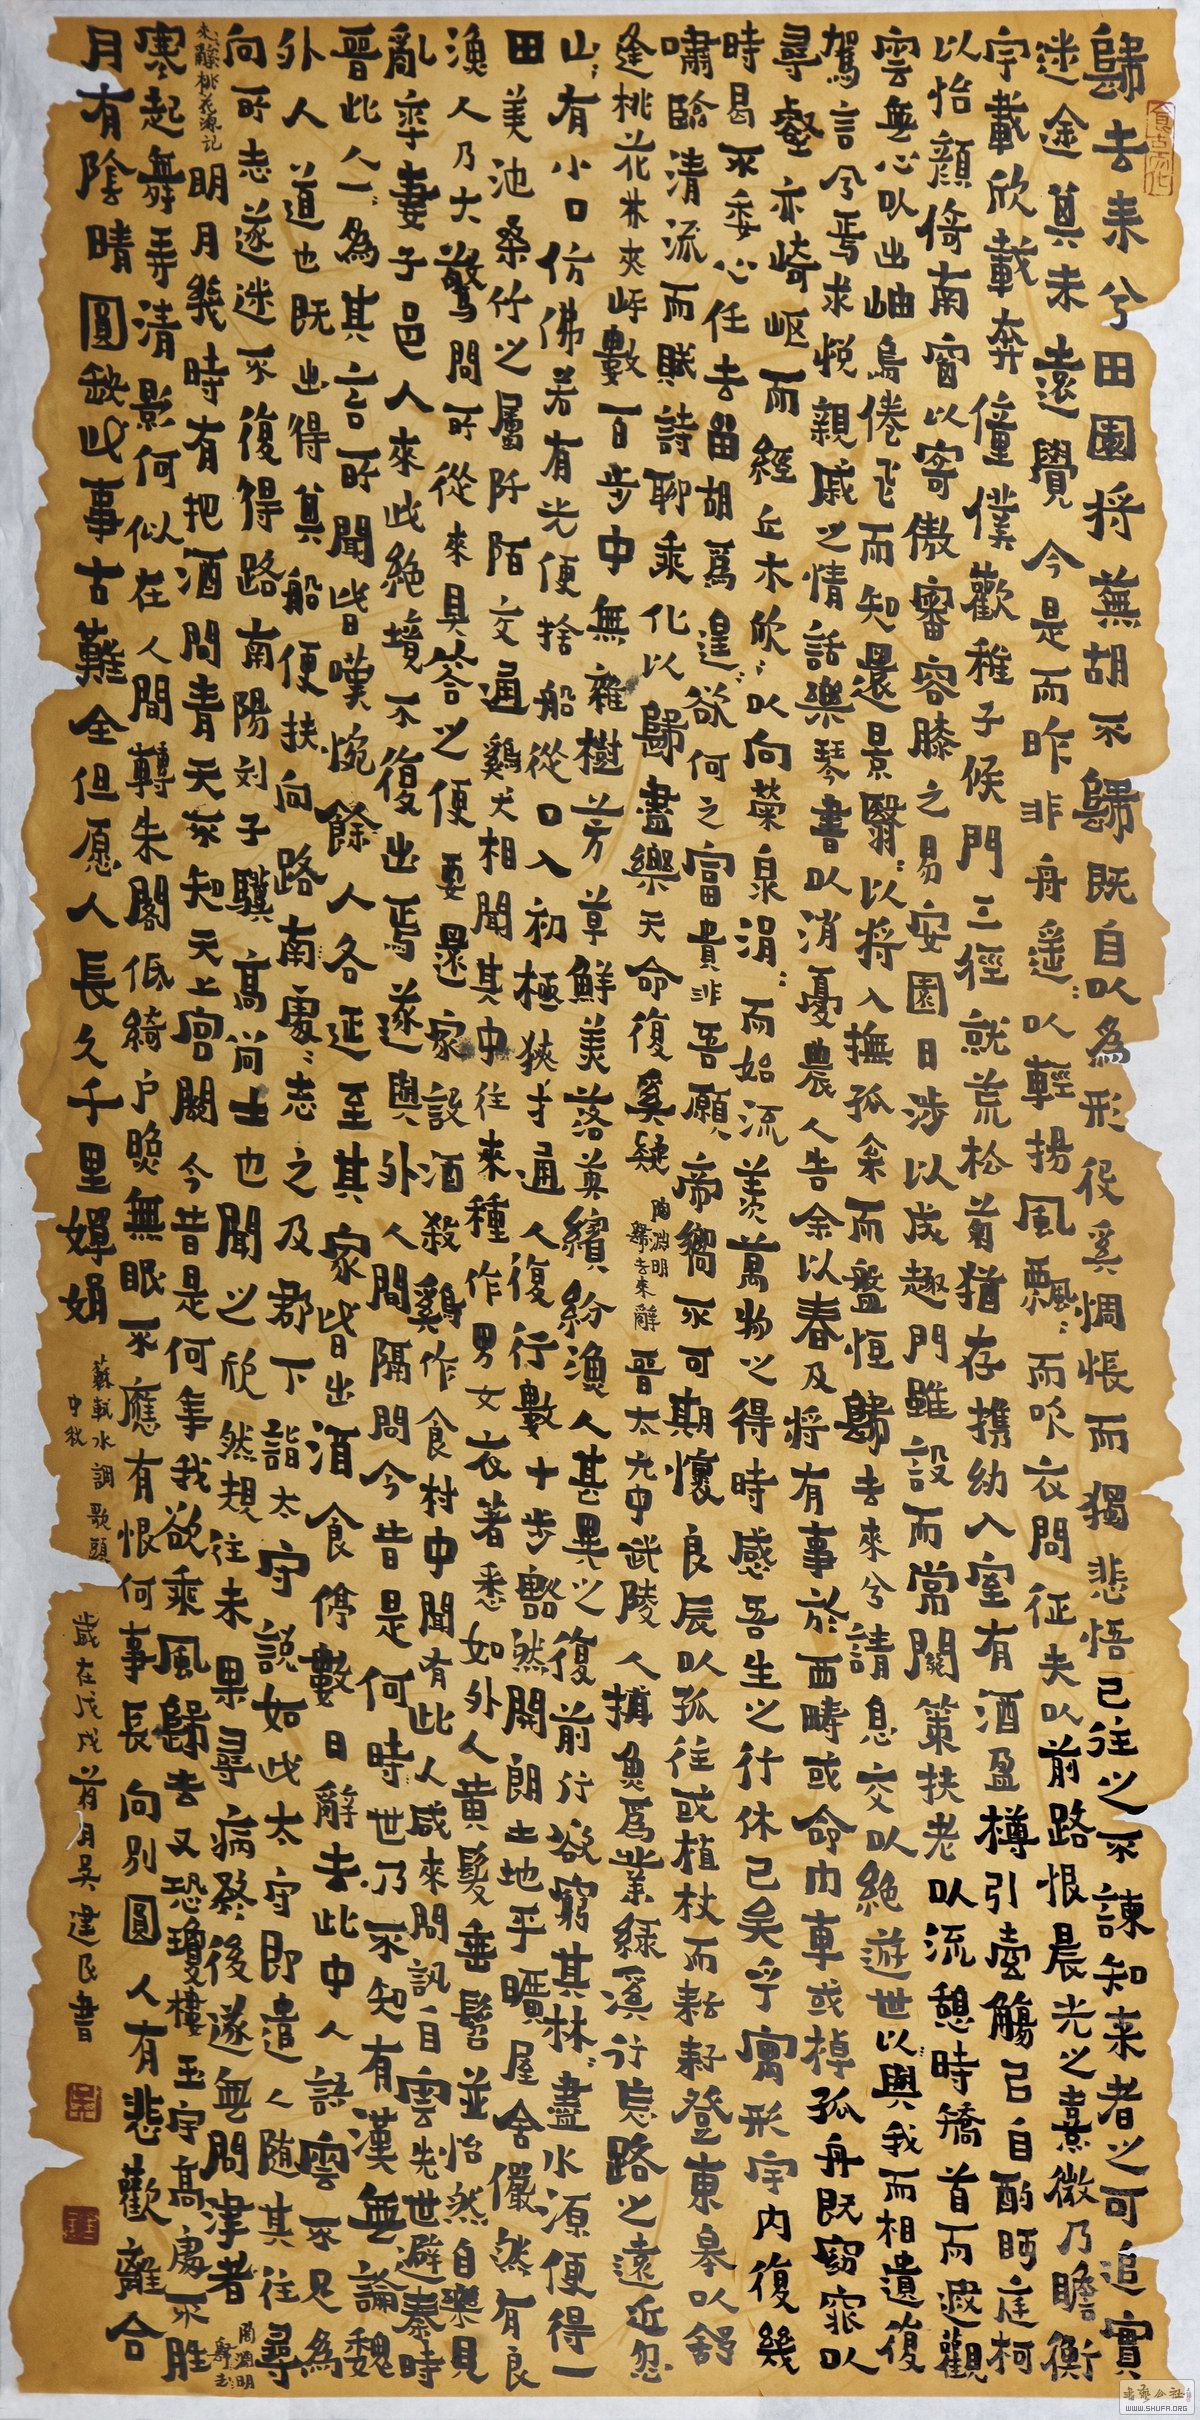 歸去来兮田園将蕪胡不歸既自以為形役奚惆悵而獨悲悟已往之不諫知来者之可追實
迷途其未遠覺今是而昨非舟遥〻以輕揚風飄〻而吹衣問征夫以前路恨晨光之熹微乃瞻衡
宇載欣載奔僮僕歡稚子候門三徑就荒松菊猶存携幼入室有酒盈樽引壺觴以自酌眄庭柯
以怡顔倚南窗以寄傲審容膝之易安園日涉以成趣門雖設而常關策扶老以流憩時矯首而遐觀
雲無心以出岫鳥倦飛而知還景翳〻以将入撫孤松而盤恒歸去來兮請息交以絶遊世以與我而相遺復
駕言兮焉求悦親戚之情話樂琴書以消憂農人告余以春及将有事於西疇或命巾車或棹孤舟既窈窕以
尋壑亦崎岖而經丘木欣〻以向榮泉涓〻而始流羨萬物之得時感吾生之行休已矣乎寓形宇内復幾
時曷不委心任去留胡爲遑〻欲何之富貴非吾願帝鄉不可期懷良辰以孤往或植杖而耘耔登東皋以舒
嘯臨清流而賦詩聊乘化以歸盡樂天命復奚疑
陶淵明
歸去來辭
晉太元中武陵人捕魚爲業緣溪行忘路之遠近忽
逢桃花林夾岸數百步中無雜樹芳草鮮美落英繽紛漁人甚異之復前行欲窮其林〻盡水源便得一
山〻有小口仿佛若有光便捨船從口入初極狹才通人復行數十步豁然開朗土地平曠屋舍儼然有良
田美池桑竹之屬阡陌交通雞犬相聞其中往來種作男女衣著悉如外人黄髮垂髫並怡然自樂見
漁人乃大驚問所從來具答之便要還家設酒殺雞作食村中聞有此人咸來問訊自雲先世避秦時
亂率妻子邑人來此絶境不復出焉遂與外人間隔問今昔是何時世乃不知有漢無論魏
晉此人一〻為其言所聞皆嘆惋餘人各延至其家皆出酒食停數日辭去此中人語雲不足為
外人道也既出得其船便扶向路南處〻志之及郡下詣太守説如此太守即遣人随其往尋
向所志遂迷不復得路南陽刘子驥高尚士也聞之欣然規往未果尋病終後遂無問津者
陶淵明
歸去
来辭桃花源記
明月幾時有把酒問青天不知天上宫闕今昔是何事我欲乘風歸去又恐瓊樓玉宇高處不胜
寒起舞弄清影何似在人間轉朱閣低綺户照無眠不應有恨何事長向别圓人有悲歡離合
月有陰晴圓缺此事古難全但愿人長久千里嬋娟
蘇軾水調歌頭
中秋
歲在戊戌月吴建民書
WWW.SHUFA.ORG